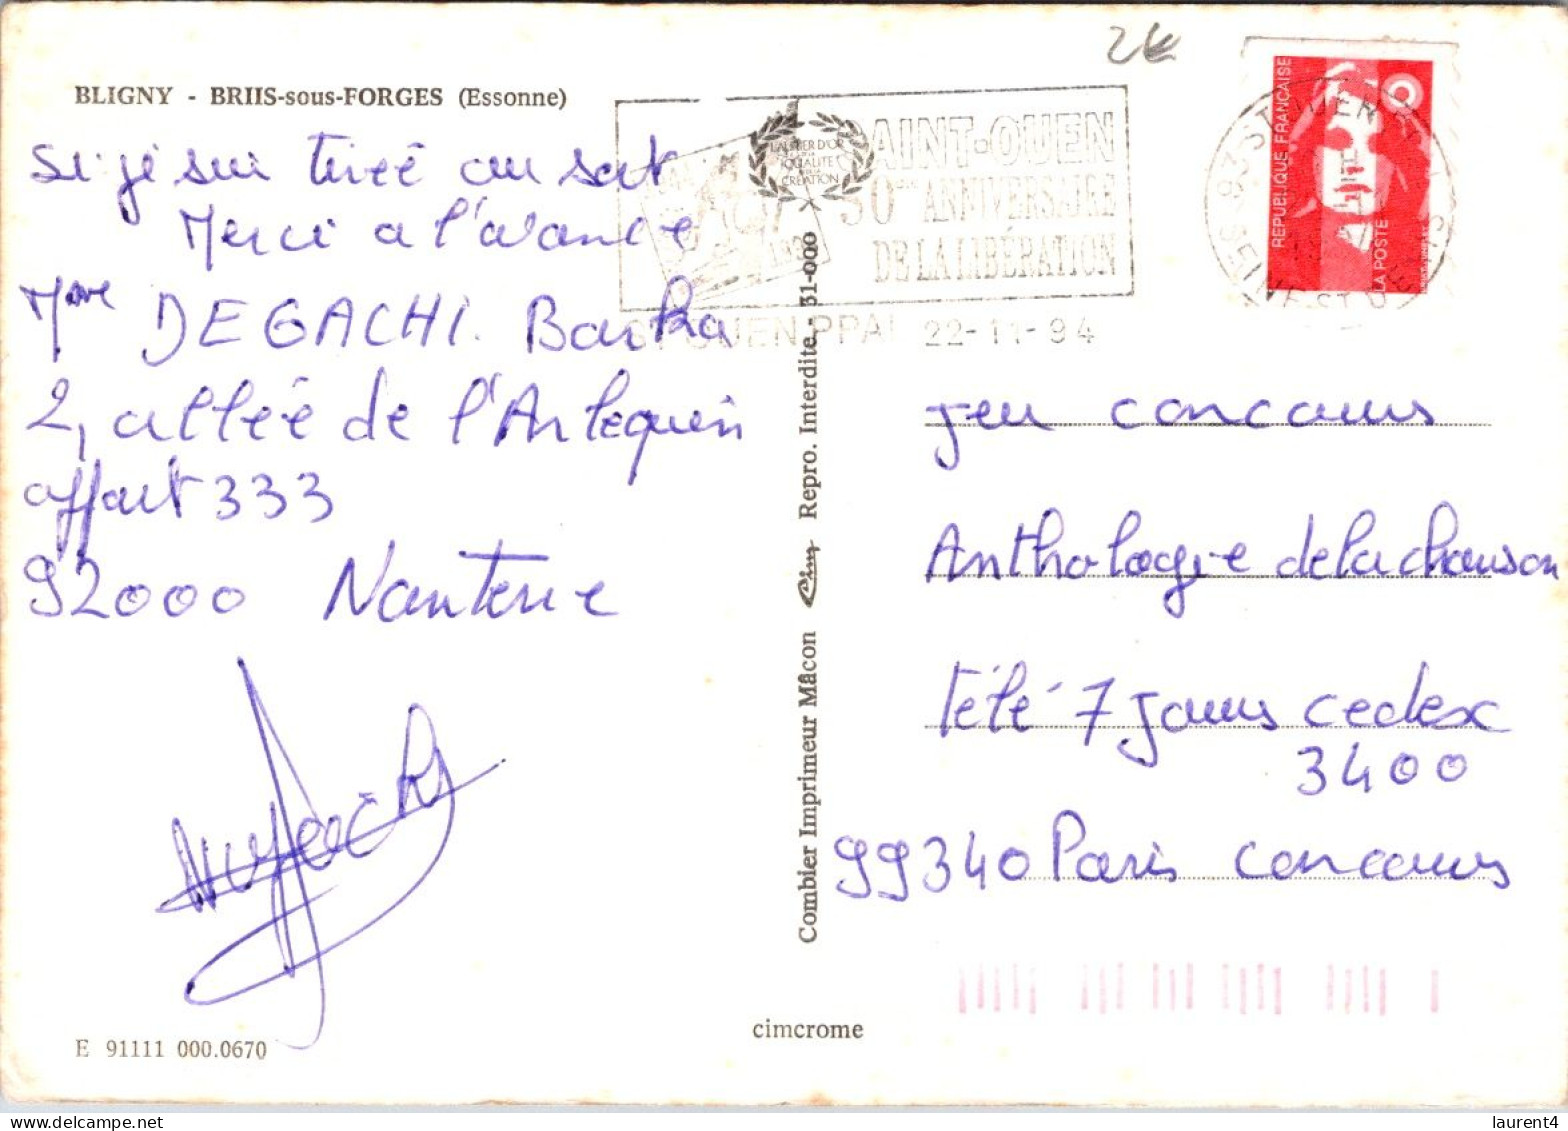 BLIGNY - BRIIS-sous-FORGES (Essonne)
si je sui tireé au sort
Merci a l'avance
Mme DEGACHI. Barka
2, allée de l'Arlequin
appart 333
92000 Nanterre
E 91111 000.0670
Combier Imprimeur Mâcon Cim Repro. Interdite - 31-000
cimcrome
L'ALSIER D'OR
QUALITE
CREATION
SAINT-OUEN
50ème ANNIVERSAIRE
DE LA LIBÉRATION
ST OUEN PPAL 22-11-94
2€
REPUBLIQUE FRANÇAISE
LA POSTE
93 ST OUEN
SEINE ST DENIS
jeu concours
Anthologie de la chanson
télé 7 jours cedex
3400
99340 Paris concours
laurent4